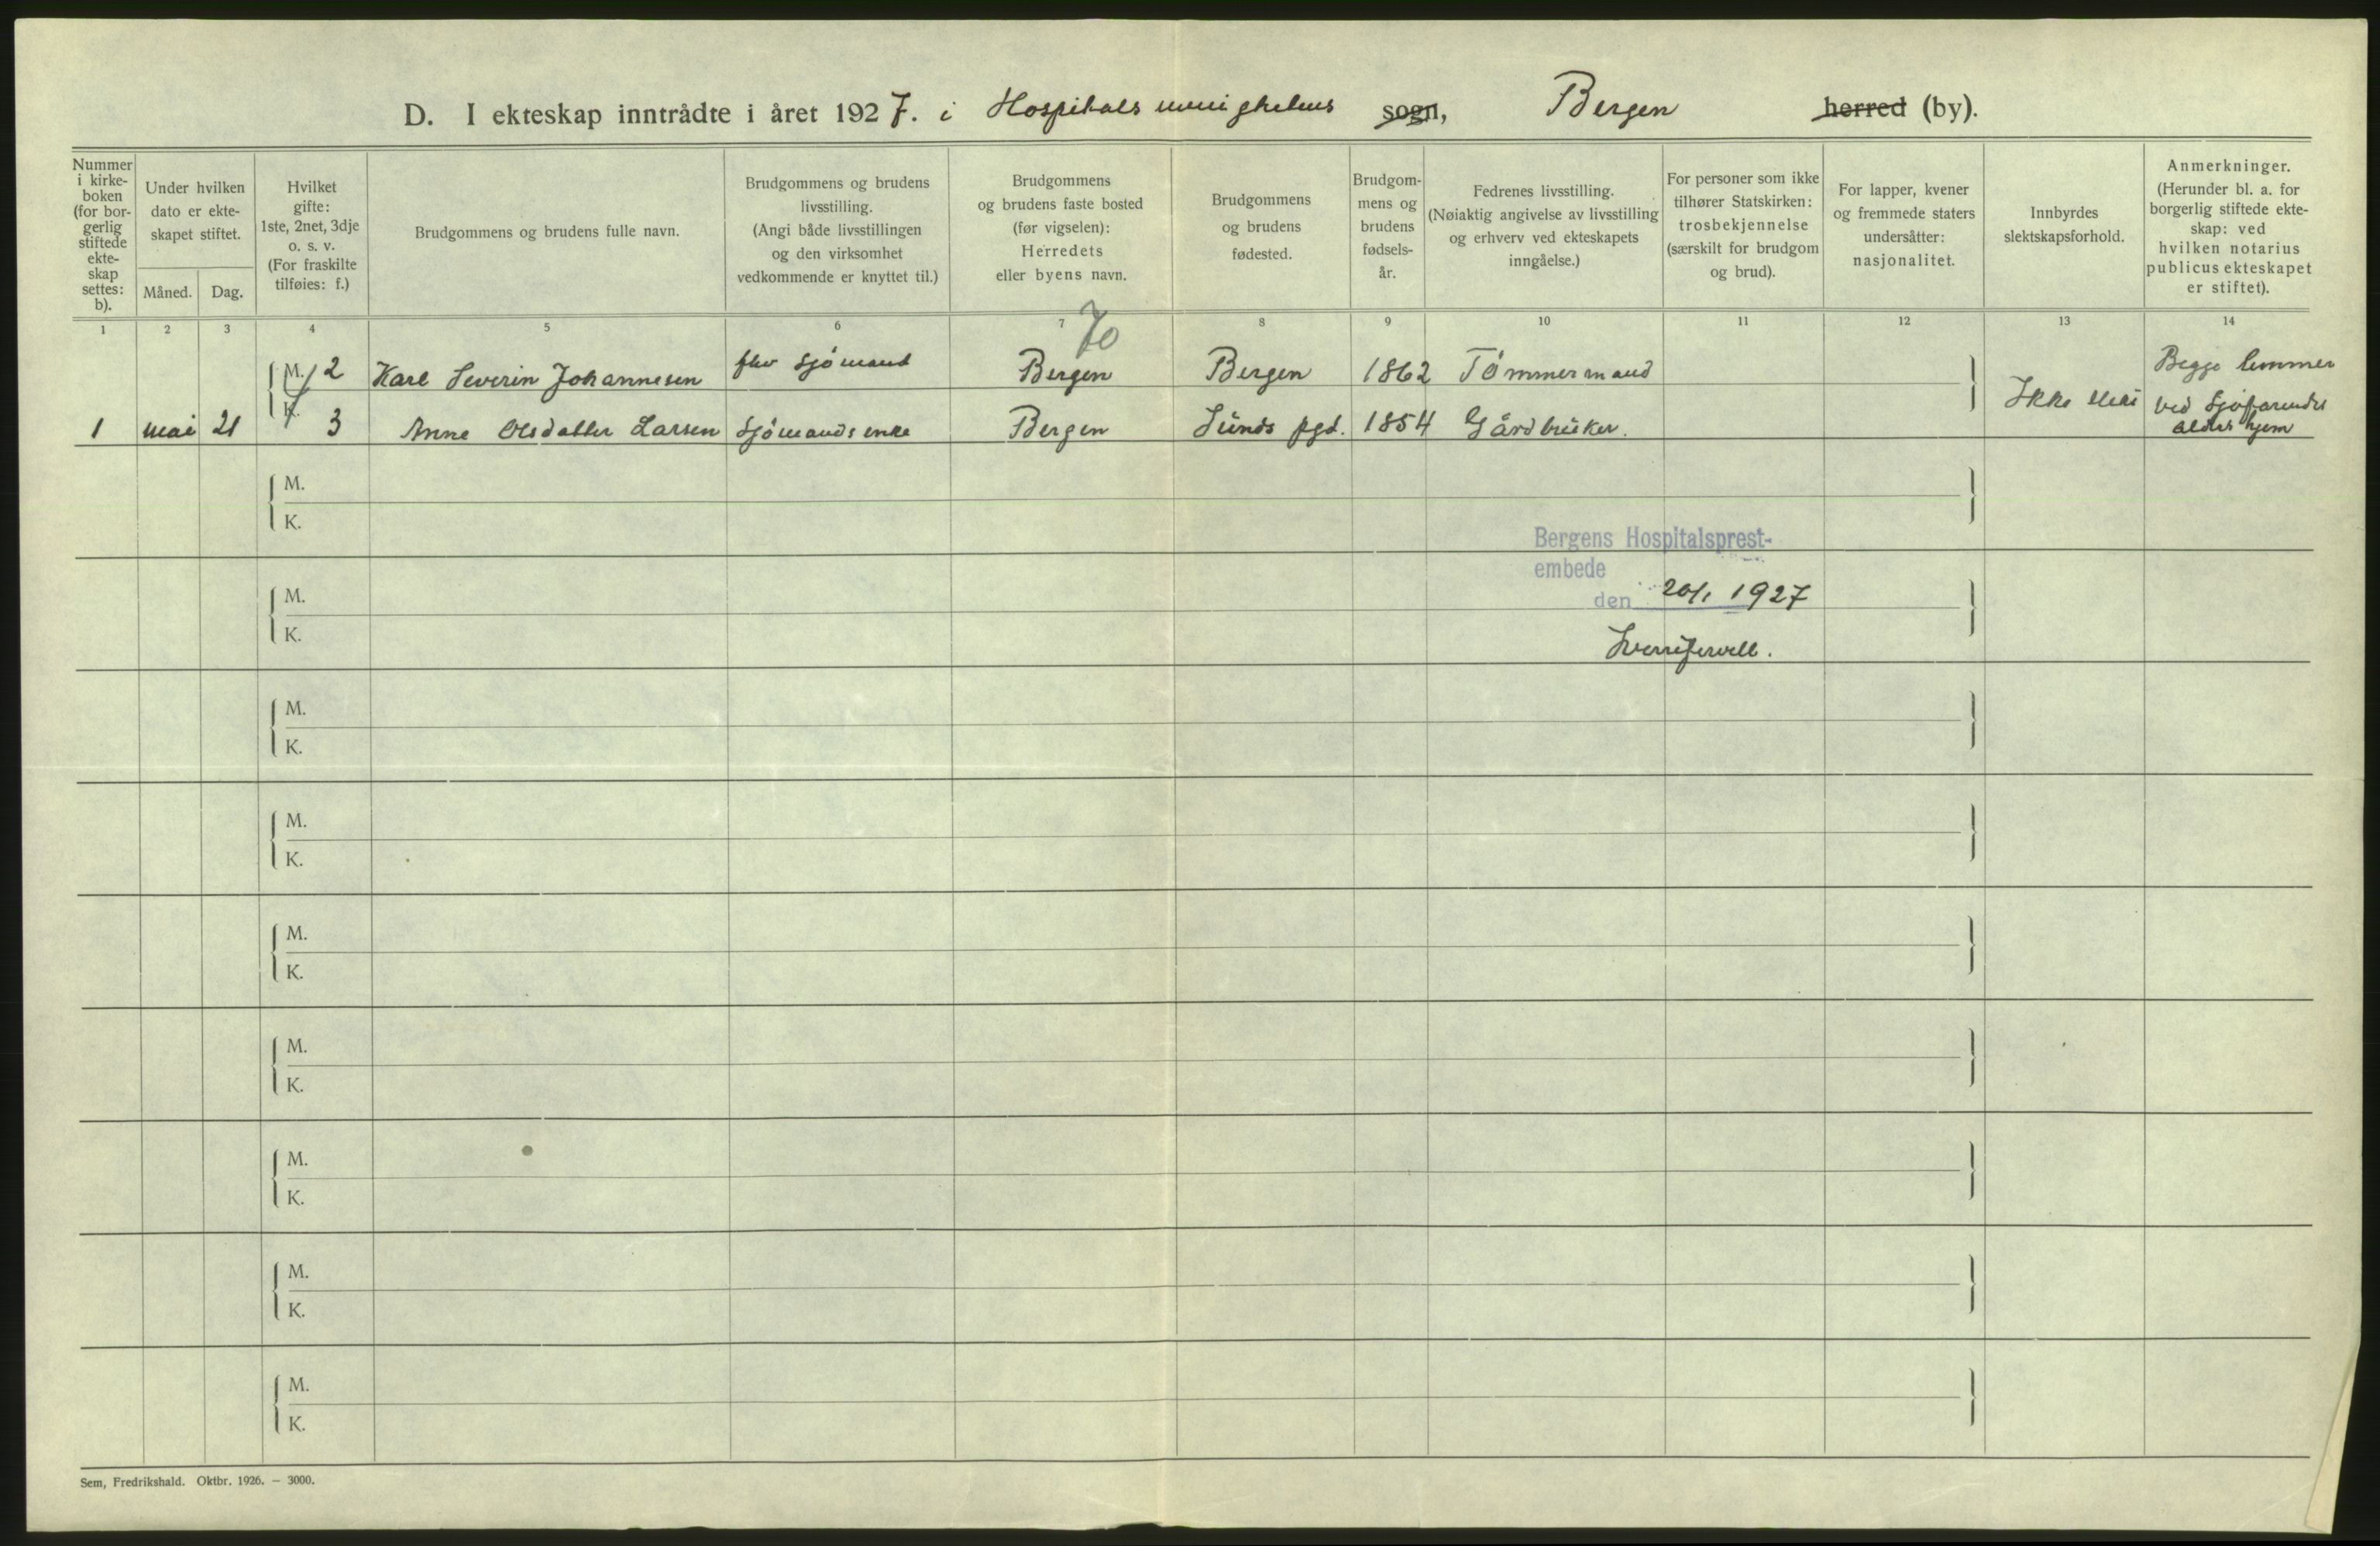 D. I ekteskap inntrådte i året 1927. i Hospitals menigheten sogn, Bergen herred (by).
Nummer i kirkeboken (for borgerlig stiftede ekteskap settes: b).
Under hvilken dato er ekteskapet stiftet.
Måned. Dag.
Hvilket gifte: 1ste, 2net, 3dje o. s. v. (For fraskilte tilføies: f.)
Brudgommens og brudens fulle navn.
Brudgommens og brudens livsstilling. (Angi både livsstillingen og den virksomhet vedkommende er knyttet til.)
Brudgommens og brudens faste bosted (før vigselen): Herredets eller byens navn.
Brudgommens og brudens fødested.
Brudgommens og brudens fødselsår.
Fedrenes livsstilling. (Nøiaktig angivelse av livsstilling og erhverv ved ekteskapets inngåelse.)
For personer som ikke tilhører Statskirken: trosbekjennelse (særskilt for brudgom og brud).
For lapper, kvener og fremmede staters undersåtter: nasjonalitet.
Innbyrdes slektskapsforhold.
Anmerkninger. (Herunder bl. a. for borgerlig stiftede ekteskap: ved hvilken notarius publicus ekteskapet er stiftet).
1 2 3 4 5 6 7 8 9 10 11 12 13 14
70
M. 2 Karl Severin Johannesen fhv Sjømand Bergen Bergen 1862 Tømmermand
1 mai 21 K. 3 Anne Olsdatter Larsen Sjømands enke Bergen Sunds pgd. 1854 Gårdbruker.
Ikke
Begge lemmer
ved Sjøfarendes
alders hjem
M.
K.
Bergens Hospitalsprest-
embede
M.
den 20/1 1927
K.
M.
K.
M.
K.
M.
K.
M.
K.
M.
K.
M.
K.
M.
K.
Sem, Fredrikshald. Oktbr. 1926. — 3000.